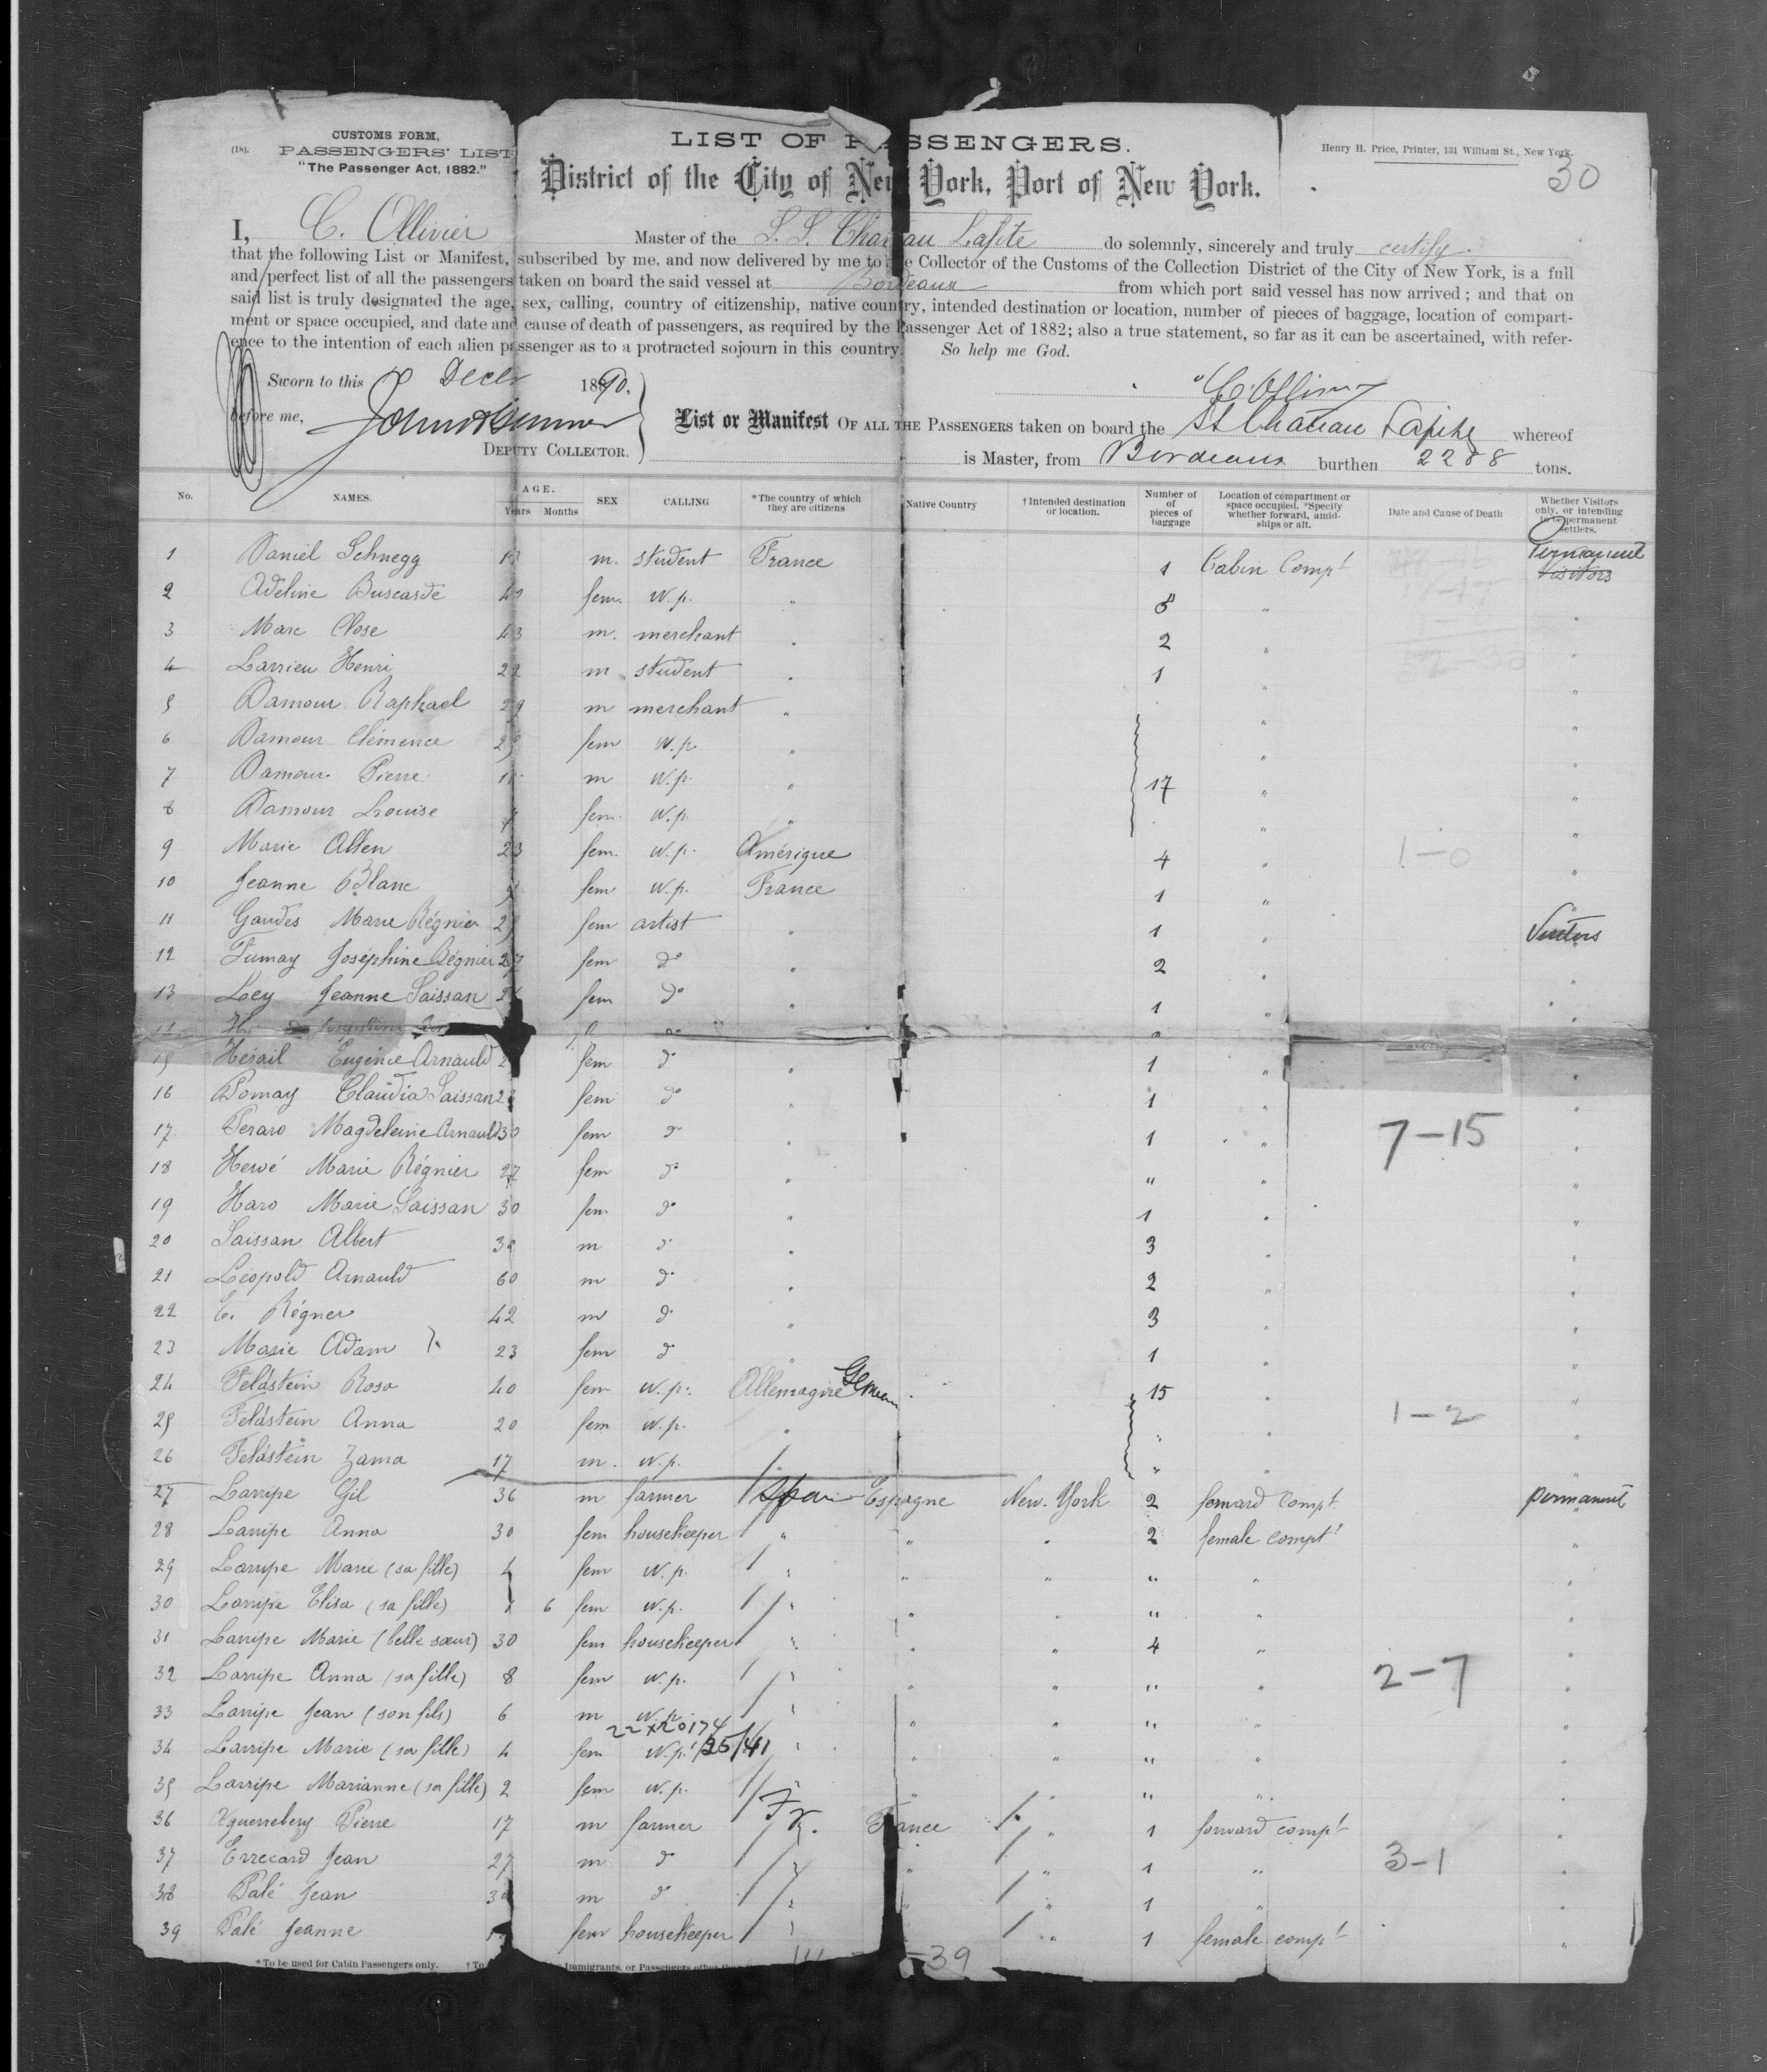 CUSTOMS FORM,
(18). PASSENGERS' LIST
"The Passenger Act, 1882."
LIST OF PASSENGERS.
District of the City of New York, Port of New York.
Henry H. Price, Printer, 131 William St., New York.
30
I, C. Ollivier Master of the S. S. Chateau Lafite do solemnly, sincerely and truly certify
that the following List or Manifest, subscribed by me, and now delivered by me to the Collector of the Customs of the Collection District of the City of New York, is a full
and perfect list of all the passengers taken on board the said vessel at Bordeaux from which port said vessel has now arrived; and that on
said list is truly designated the age, sex, calling, country of citizenship, native country, intended destination or location, number of pieces of baggage, location of compart-
ment or space occupied, and date and cause of death of passengers, as required by the Passenger Act of 1882; also a true statement, so far as it can be ascertained, with refer-
ence to the intention of each alien passenger as to a protracted sojourn in this country. So help me God.
Sworn to this Decbr 1890.
before me,
DEPUTY COLLECTOR.
C. Ollivier
List or Manifest OF ALL THE PASSENGERS taken on board the SS Chateau Lafite whereof
is Master, from Bordeaux burthen 2288 tons.
No. NAMES. AGE. Years Months SEX CALLING *The country of which they are citizens Native Country †Intended destination or location. Number of pieces of baggage Location of compartment or space occupied. *Specify whether forward, amid-ships or aft. Date and Cause of Death Whether Visitors only, or intending to be permanent settlers.
1 Daniel Schnegg m. student France 1 Cabin Compt Permanent Visitors
2 Adeline Buscarde 40 fem. W.p. "
3 Marc Close 43 m. merchant " 2 "
4 Larrieu Henri 22 m. student " 1 "
5 Damour Raphael 29 m merchant " "
6 Damour Clémence fem W.p. " "
7 Damour Pierre m W.p. " 17 "
8 Damour Louise fem. W.p. " "
9 Marie Allen 23 fem. W.p. Amérique 4 " 1-0 "
10 Jeanne Blanc fem W.p. France 1 " "
11 Gaudes Marie Régnier fem artist " 1 " Visitors
12 Fumay Joséphine Régnier 27 fem do " 2 " "
13 Ley Jeanne Saissan fem do " 1 " "
15 Hérail Eugénie Arnauld fem do " 1 " "
16 Pomay Claudia Saissan fem do " 1 " "
17 Peraro Magdeleine Arnauld 30 fem do " 1 " 7-15 "
18 Hervé Marie Régnier 27 fem do " " " "
19 Haro Marie Saissan 30 fem do " 1 " "
20 Saissan Albert m do " 3 " "
21 Léopold Arnauld 60 m do " 2 " "
22 E. Régner 42 m do " 3 " "
23 Marie Adam 23 fem do " 1 " "
24 Feldstein Rosa 40 fem W.p. Allemagne German 15 " "
25 Feldstein Anna 20 fem W.p. " " " 1-2 "
26 Feldstein Zama 17 m. W.p. " " " "
27 Larripe Gil 36 m farmer Spain Espagne New-York 2 forward compt permanent
28 Larripe Anna 30 fem housekeeper " " " 2 female compt "
29 Larripe Marie (sa fille) 4 fem W.p. " " " " " "
30 Larripe Elisa (sa fille) 1 6 fem W.p. " " " " " "
31 Larripe Marie (belle sœur) 30 fem housekeeper " " " 4 " "
32 Larripe Anna (sa fille) 8 fem W.p. " " " " " 2-7 "
33 Larripe Jean (son fils) 6 m W.p. " " " " " "
34 Larripe Marie (sa fille) 4 fem W.p. " " " " " "
35 Larripe Marianne (sa fille) 2 fem W.p. " " " " " "
36 Pierre 17 m farmer Fr. France " 1 forward compt "
37 Errecard Jean 27 m do " " " 1 " 3-1 "
38 Palé Jean m do " " " 1 " "
39 Palé Jeanne fem housekeeper " " " 1 female compt "
*To be used for Cabin Passengers only. †To Immigrants, or Passengers other
39